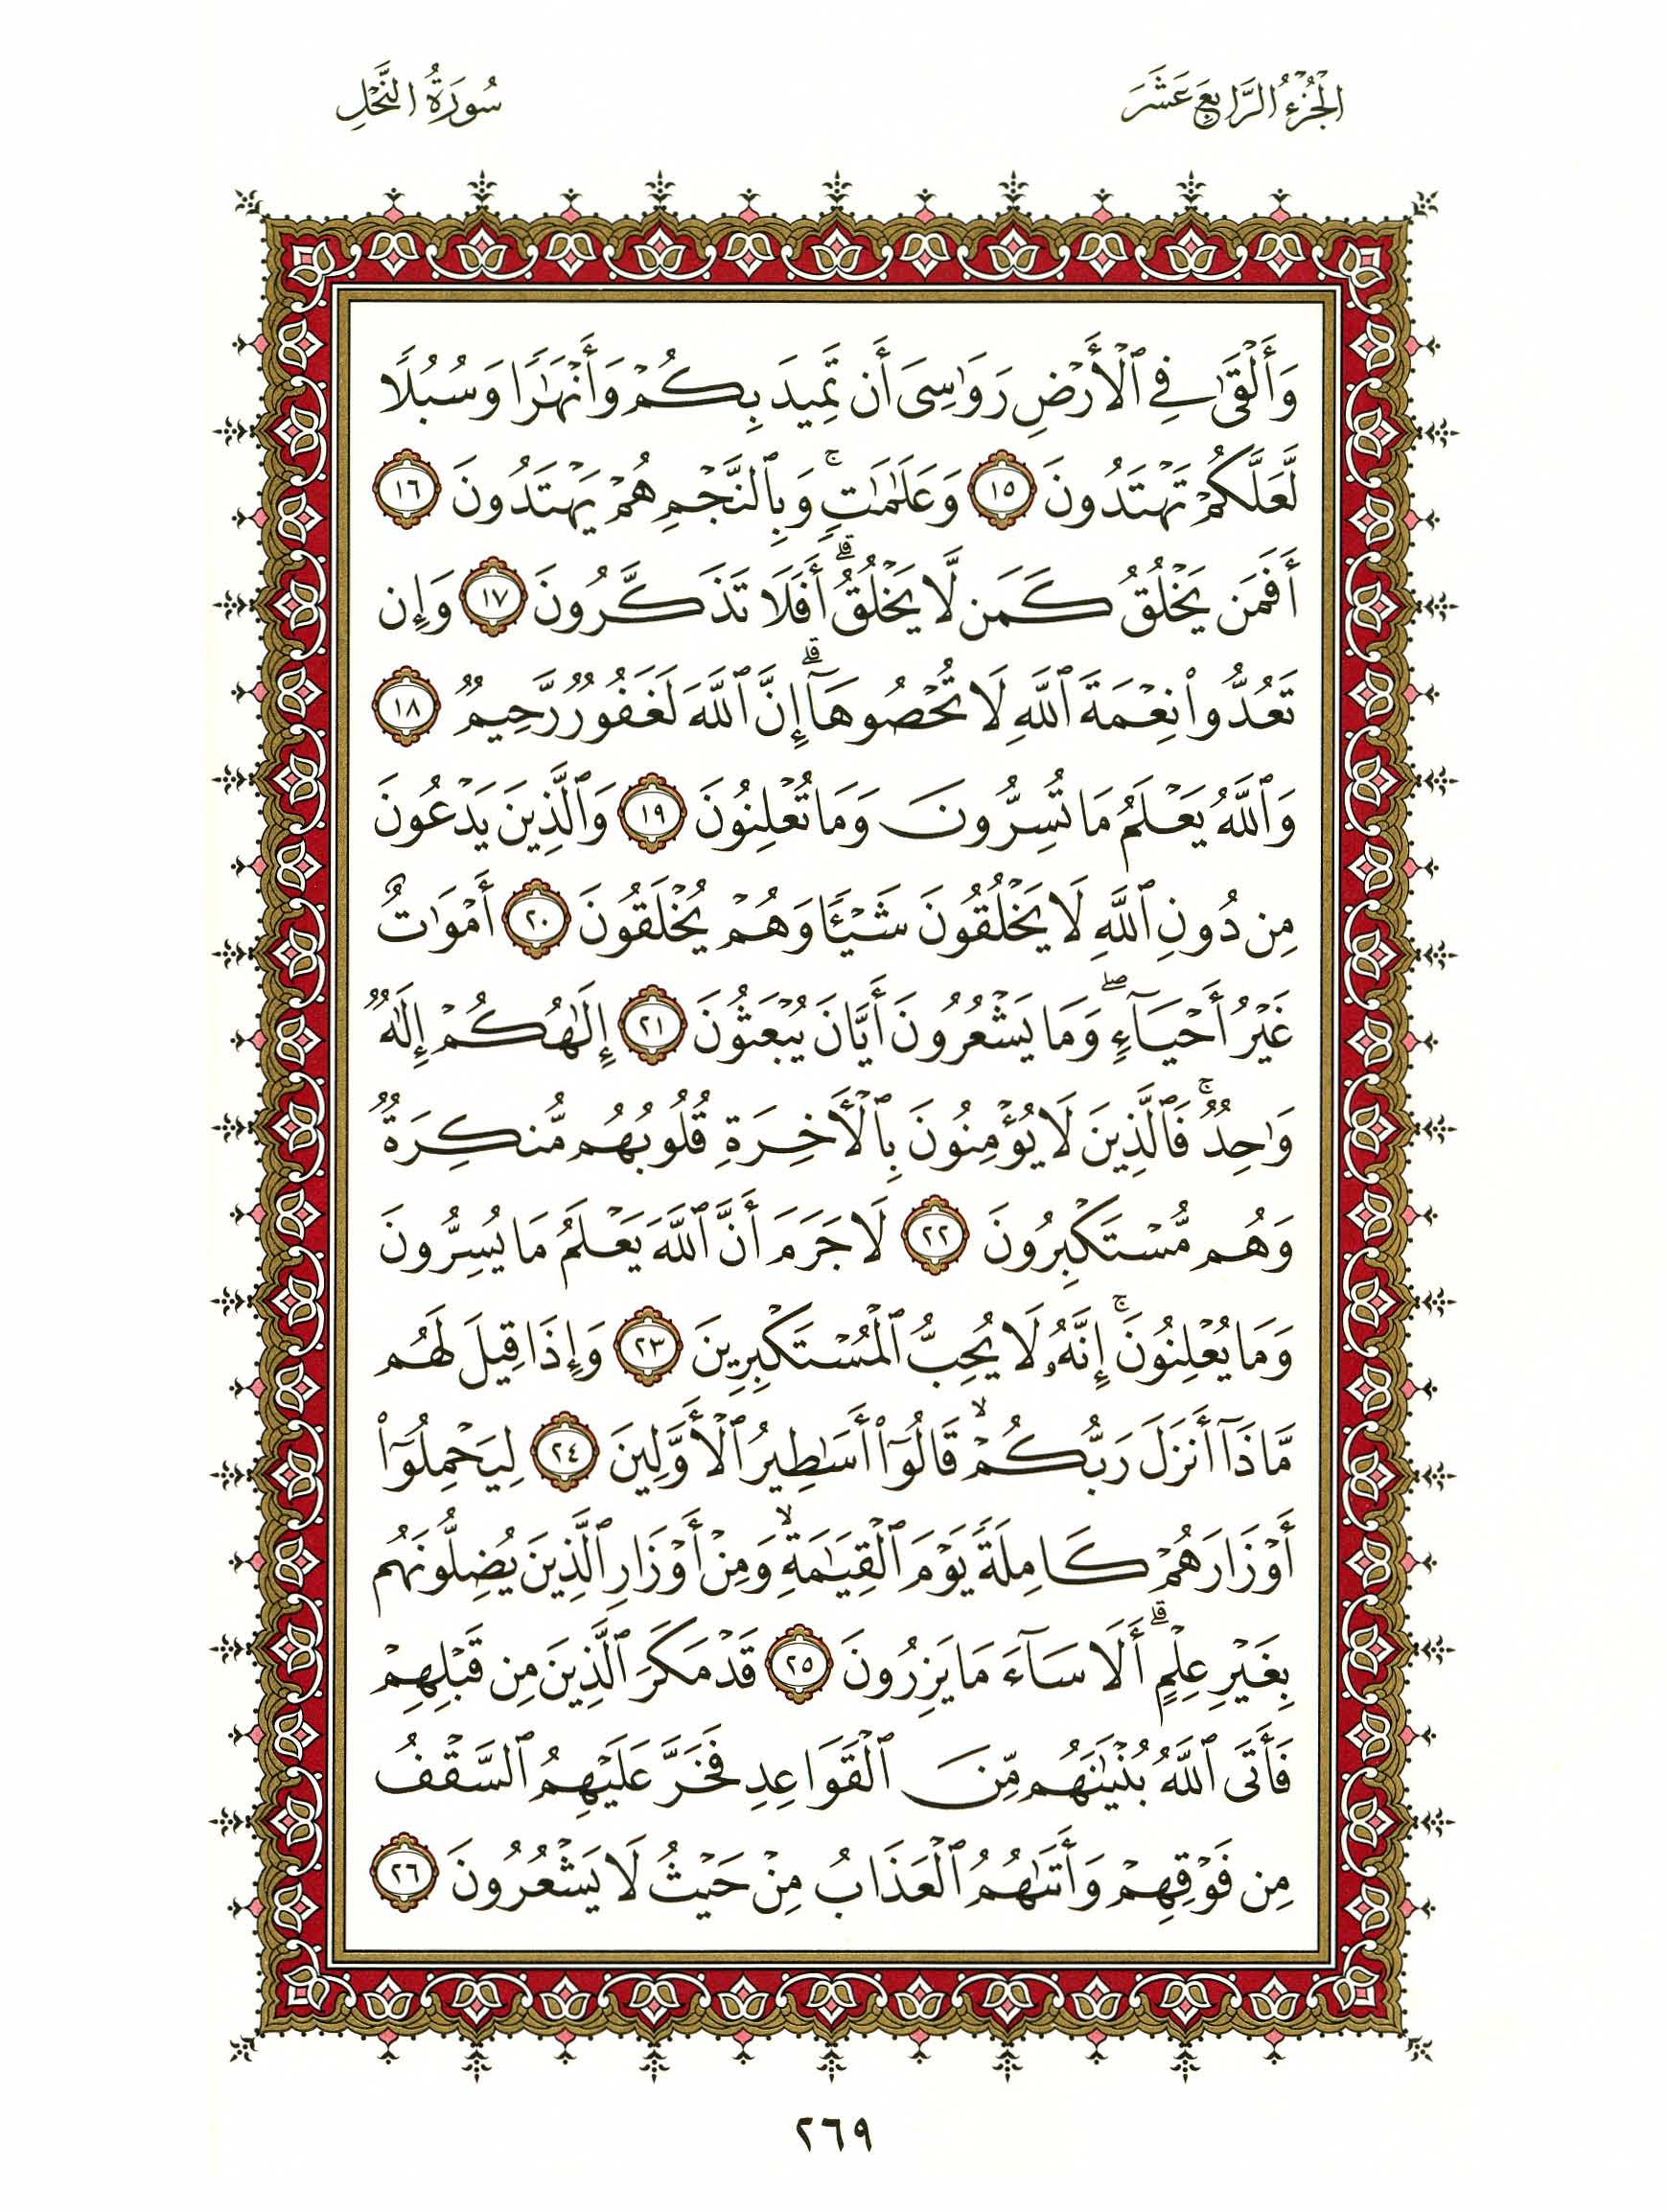 الجُزْءُ الرَّابِعَ عَشَرَ
سُورَةُ النَّحْلِ
وَأَلْقَىٰ فِي ٱلْأَرْضِ رَوَٰسِىَ أَن تَمِيدَ بِكُمْ وَأَنْهَٰرًا وَسُبُلًا
لَّعَلَّكُمْ تَهْتَدُونَ ١٥ وَعَلَٰمَٰتٍۚ وَبِٱلنَّجْمِ هُمْ يَهْتَدُونَ ١٦
أَفَمَن يَخْلُقُ كَمَن لَّا يَخْلُقُۗ أَفَلَا تَذَكَّرُونَ ١٧ وَإِن
تَعُدُّوا۟ نِعْمَةَ ٱللَّهِ لَا تُحْصُوهَآۗ إِنَّ ٱللَّهَ لَغَفُورٌ رَّحِيمٌ ١٨
وَٱللَّهُ يَعْلَمُ مَا تُسِرُّونَ وَمَا تُعْلِنُونَ ١٩ وَٱلَّذِينَ يَدْعُونَ
مِن دُونِ ٱللَّهِ لَا يَخْلُقُونَ شَيْـًٔا وَهُمْ يُخْلَقُونَ ٢٠ أَمْوَٰتٌ
غَيْرُ أَحْيَآءٍۖ وَمَا يَشْعُرُونَ أَيَّانَ يُبْعَثُونَ ٢١ إِلَٰهُكُمْ إِلَٰهٌ
وَٰحِدٌۚ فَٱلَّذِينَ لَا يُؤْمِنُونَ بِٱلْـَٔاخِرَةِ قُلُوبُهُم مُّنكِرَةٌ
وَهُم مُّسْتَكْبِرُونَ ٢٢ لَا جَرَمَ أَنَّ ٱللَّهَ يَعْلَمُ مَا يُسِرُّونَ
وَمَا يُعْلِنُونَۚ إِنَّهُۥ لَا يُحِبُّ ٱلْمُسْتَكْبِرِينَ ٢٣ وَإِذَا قِيلَ لَهُم
مَّاذَآ أَنزَلَ رَبُّكُمْۙ قَالُوٓا۟ أَسَٰطِيرُ ٱلْأَوَّلِينَ ٢٤ لِيَحْمِلُوٓا۟
أَوْزَارَهُمْ كَامِلَةً يَوْمَ ٱلْقِيَٰمَةِۙ وَمِنْ أَوْزَارِ ٱلَّذِينَ يُضِلُّونَهُم
بِغَيْرِ عِلْمٍۗ أَلَا سَآءَ مَا يَزِرُونَ ٢٥ قَدْ مَكَرَ ٱلَّذِينَ مِن قَبْلِهِمْ
فَأَتَى ٱللَّهُ بُنْيَٰنَهُم مِّنَ ٱلْقَوَاعِدِ فَخَرَّ عَلَيْهِمُ ٱلسَّقْفُ
مِن فَوْقِهِمْ وَأَتَىٰهُمُ ٱلْعَذَابُ مِنْ حَيْثُ لَا يَشْعُرُونَ ٢٦
٢٦٩